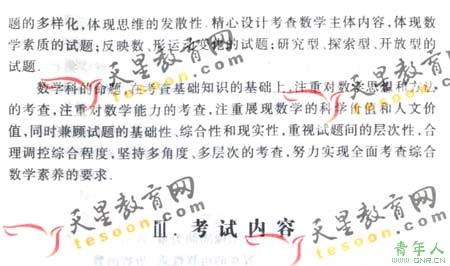 题的多样化,体现思维的发散性.精心设计考查数学主体内容,体现数
学素质的试题;反映数、形运动变化的试题;研究型、探索型、开放型的
试题.
数学科的命题,在考查基础知识的基础上,注重对数学思想和方法
的考查,注重对数学能力的考查,注重展现数学的科学价值和人文价
值,同时兼顾试题的基础性、综合性和现实性,重视试题间的层次性,合
理调控综合程度,坚持多角度、多层次的考查,努力实现全面考查综合
数学素养的要求.
Ⅲ.考试内容
天星教育网
tesoon.com
天星教育网
tesoon.com
天星教育网
tesoon.com
天星教育网
tesoon.com
青年人
WWW.QNR.CN